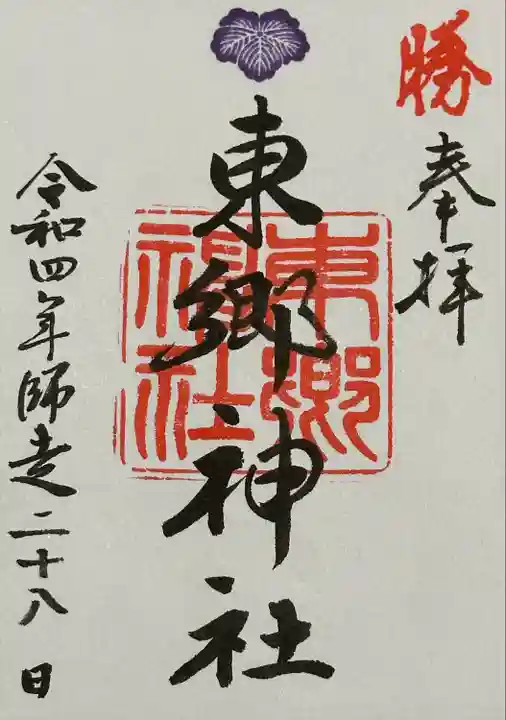 勝
奉拝
東郷神社
東郷神社
令和四年師走二十八日